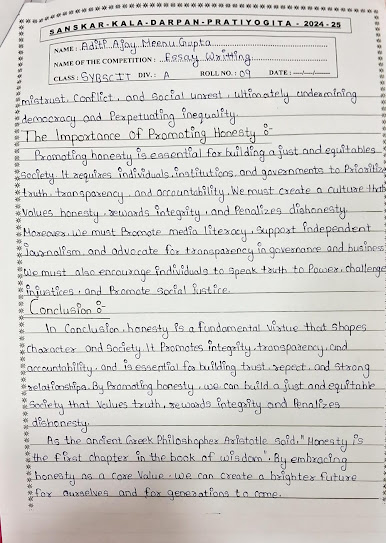 SANSKAR-KALA-DARPAN-PRATIYOGITA - 2024-25
NAME: Aditi Ajay Meenu Gupta
NAME OF THE COMPETITION: Essay Writting
CLASS: SYBSCIT DIV.: A ROLL NO.: 09 DATE: __/__/__
mistrust, Conflict, and Social unrest, Ultimately undermining
democracy and Perpetuating inequality.
The Importance Of Promoting Honesty :-
Promoting honesty is essential for building a just and equitables
Society. It requires individuals, institutions, and governments to Prioritize
truth, transparency, and accountability. We must create a culture that
Values honesty, rewards integrity, and Penalizes dishonesty.
Moreover, we must Promote media literacy, Support independent
Journalism, and advocate for transparency in governance and business
We must also encourage individuals to speak truth to Power, challenge
injustices, and Promote Social Justice.
Conclusion :-
In Conclusion, honesty is a fundamental Virtue that shapes
Character and Society. It Promotes integrity, transparency, and
accountability, and is essential for building trust, repect, and strong
relationships. By Promoting honesty, we can build a just and equitable
Society that Values truth, rewards integrity and Penalizes
dishonesty.
As the ancient Greek Philoshopher Aristotle said, "Honesty is
the first chapter in the book of wisdom". By embracing
honesty as a Core Value, we can create a brighter future
for ourselves and for generations to come.